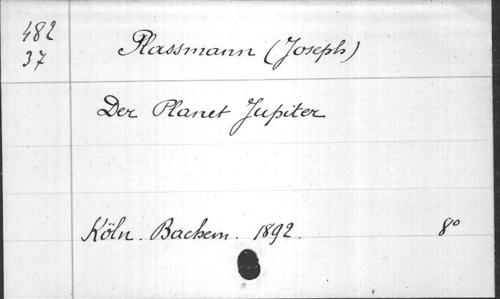 482
37
Plassmann (Joseph)
Der Planet Jupiter
Köln. Bachem. 1892. 8º